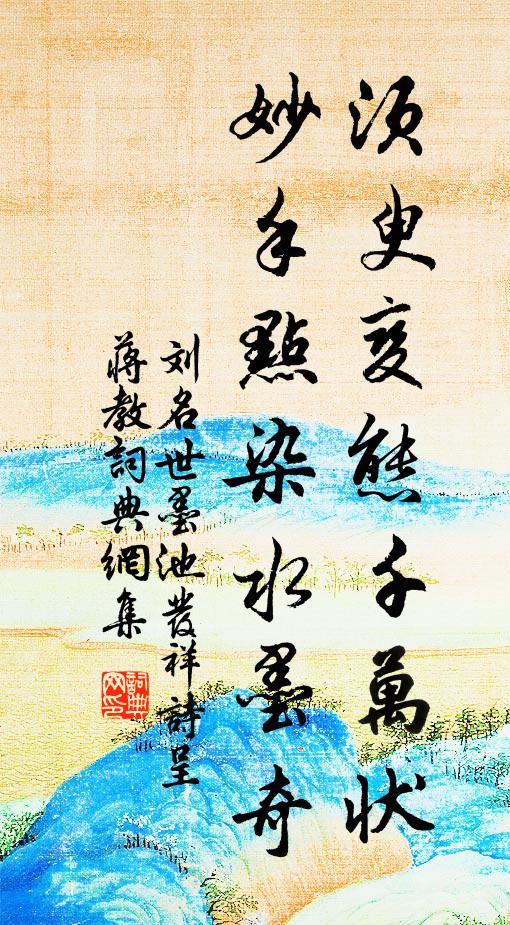 须叟变態千萬状
妙手點染水墨奇
刘名世墨池發祥詩呈
蒋教詞典網集
詞典網印